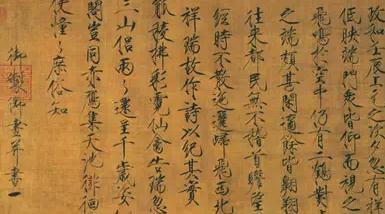 政和壬辰上元之次夕忽有祥
低映端門衆皆仰而視之
飛鳴於空中仍有二鶴對
之端頗甚閑適餘皆翱翔
往來都民無不稽首瞻望
經時不散迤邐歸飛西北
祥瑞故作詩以紀其實
觚稜拂彩霓仙禽告瑞忽
三山侶兩兩還呈千歲姿
閣豈同赤鴈集天池徘徊
使憧憧庶俗知
御製御畫并書